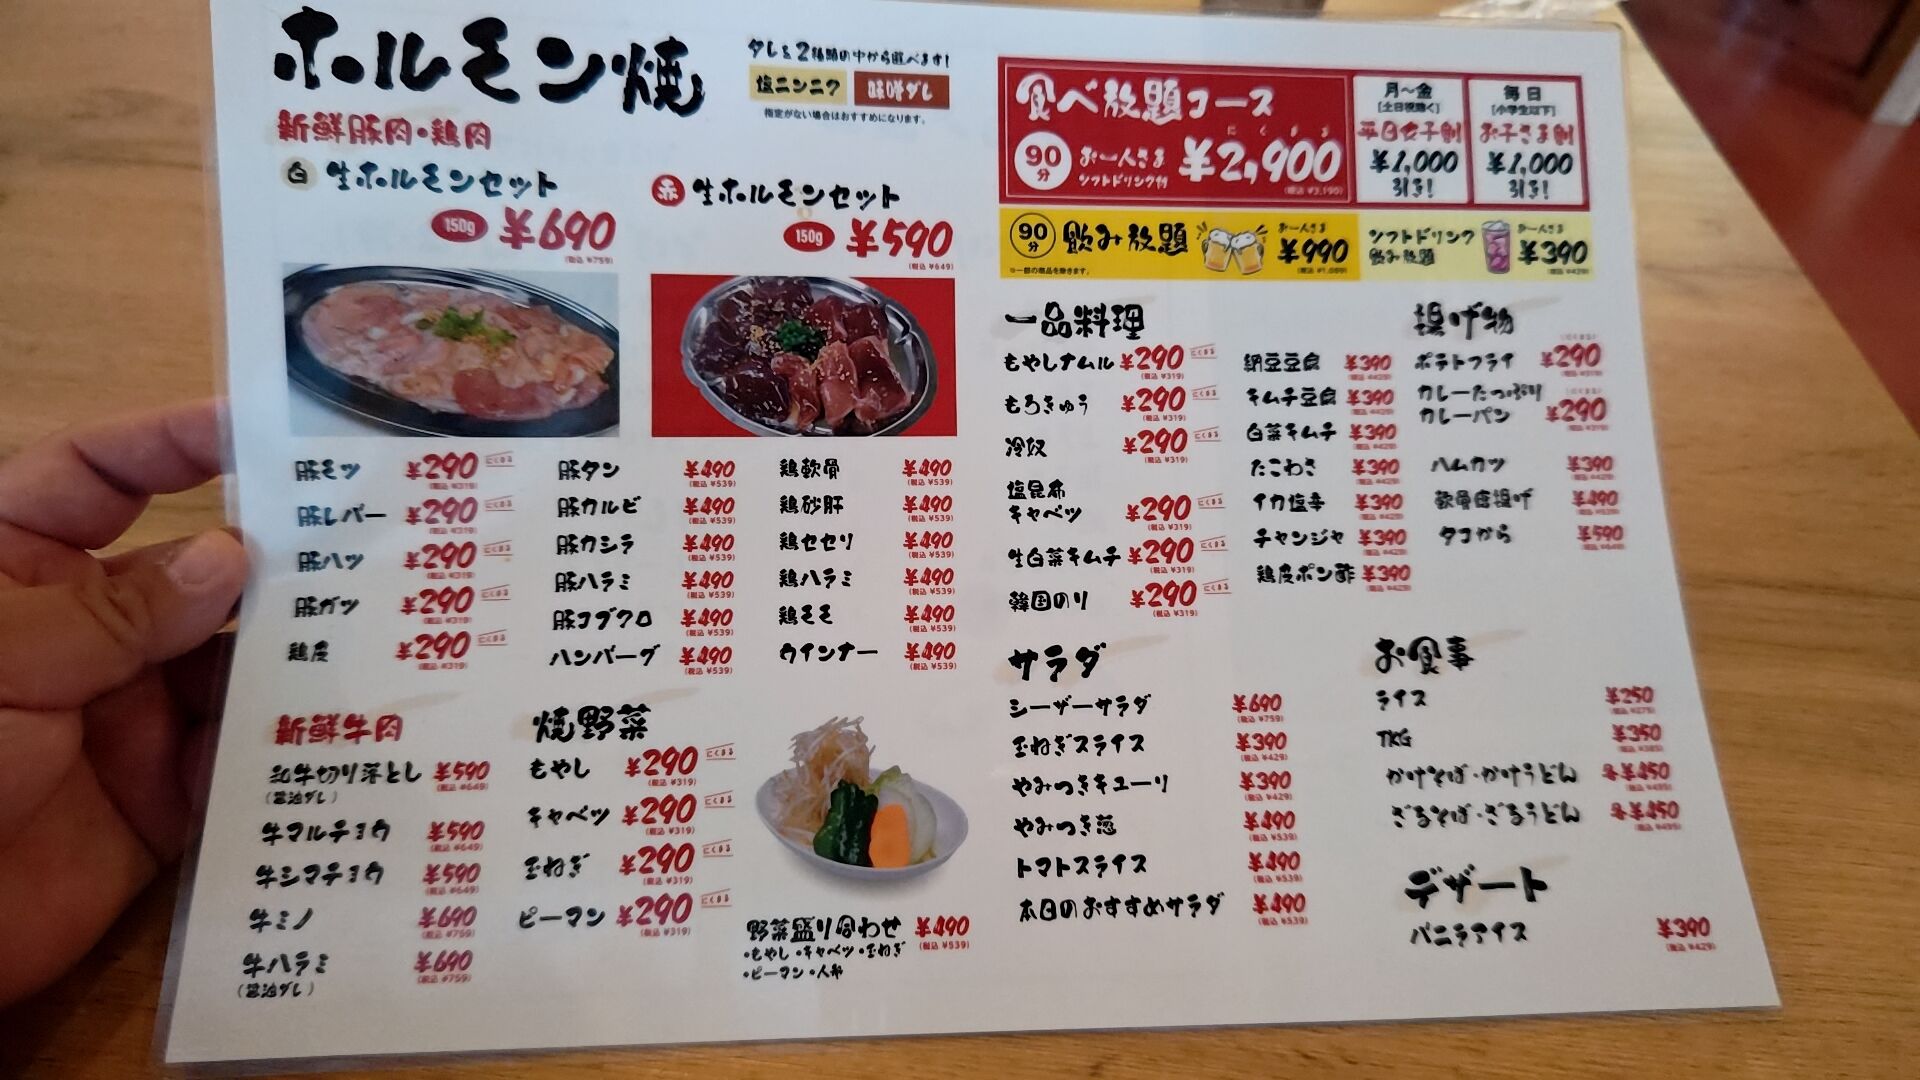 ホルモン焼
タレを2種類の中から選べます!
塩ニンニク 味噌ダレ
指定がない場合はおすすめになります。
新鮮豚肉・鶏肉
白 生ホルモンセット
150g ¥690
(税込 ¥759)
赤 生ホルモンセット
150g ¥590
(税込 ¥649)
豚モツ ¥290 にくまる
(税込 ¥319)
豚レバー ¥290 にくまる
(税込 ¥319)
豚ハツ ¥290 にくまる
(税込 ¥319)
豚ガツ ¥290 にくまる
(税込 ¥319)
鶏皮 ¥290 にくまる
(税込 ¥319)
豚タン ¥490
(税込 ¥539)
豚カルビ ¥490
(税込 ¥539)
豚カシラ ¥490
(税込 ¥539)
豚ハラミ ¥490
(税込 ¥539)
豚コブクロ ¥490
(税込 ¥539)
ハンバーグ ¥490
(税込 ¥539)
鶏軟骨 ¥490
(税込 ¥539)
鶏砂肝 ¥490
(税込 ¥539)
鶏セセリ ¥490
(税込 ¥539)
鶏ハラミ ¥490
(税込 ¥539)
鶏モモ ¥490
(税込 ¥539)
ウインナー ¥490
(税込 ¥539)
新鮮牛肉
和牛切り落とし ¥590
(醤油ダレ) (税込 ¥649)
牛マルチョウ ¥590
(税込 ¥649)
牛シマチョウ ¥590
(税込 ¥649)
牛ミノ ¥690
(税込 ¥759)
牛ハラミ ¥690
(醤油ダレ) (税込 ¥759)
焼野菜
もやし ¥290 にくまる
(税込 ¥319)
キャベツ ¥290 にくまる
(税込 ¥319)
玉ねぎ ¥290 にくまる
(税込 ¥319)
ピーマン ¥290 にくまる
(税込 ¥319)
野菜盛り合わせ ¥490
(税込 ¥539)
・もやし・キャベツ・玉ねぎ
・ピーマン・人参
食べ放題コース
90分 お一人さま ¥2,900 にくまる
ソフトドリンク付 (税込 ¥3,190)
月〜金
[土日祝除く]
平日女子割
¥1,000
引き!
毎日
[小学生以下]
お子さま割
¥1,000
引き!
90分 飲み放題 お一人さま ¥990
※一部の商品を除きます。 (税込 ¥1,089)
ソフトドリンク
飲み放題 お一人さま ¥390
(税込 ¥429)
一品料理
もやしナムル ¥290 にくまる
(税込 ¥319)
もろきゅう ¥290 にくまる
(税込 ¥319)
冷奴 ¥290 にくまる
(税込 ¥319)
塩昆布
キャベツ ¥290 にくまる
(税込 ¥319)
生白菜キムチ ¥290 にくまる
(税込 ¥319)
韓国のり ¥290 にくまる
(税込 ¥319)
納豆豆腐 ¥390
(税込 ¥429)
キムチ豆腐 ¥390
(税込 ¥429)
白菜キムチ ¥390
(税込 ¥429)
たこわさ ¥390
(税込 ¥429)
イカ塩辛 ¥390
(税込 ¥429)
チャンジャ ¥390
(税込 ¥429)
鶏皮ポン酢 ¥390
(税込 ¥429)
揚げ物
ポテトフライ ¥290
(税込 ¥319)
カレーたっぷり
カレーパン ¥290
(税込 ¥319)
ハムカツ ¥390
(税込 ¥429)
軟骨唐揚げ ¥490
(税込 ¥539)
タコから ¥590
(税込 ¥649)
サラダ
シーザーサラダ ¥690
(税込 ¥759)
玉ねぎスライス ¥390
(税込 ¥429)
やみつきキューリ ¥390
(税込 ¥429)
やみつき葱 ¥490
(税込 ¥539)
トマトスライス ¥490
(税込 ¥539)
本日のおすすめサラダ ¥490
(税込 ¥539)
お食事
ライス ¥250
(税込 ¥275)
TKG ¥350
(税込 ¥385)
かけそば・かけうどん 各¥450
(税込 ¥495)
ざるそば・ざるうどん 各¥450
(税込 ¥495)
デザート
バニラアイス ¥390
(税込 ¥429)